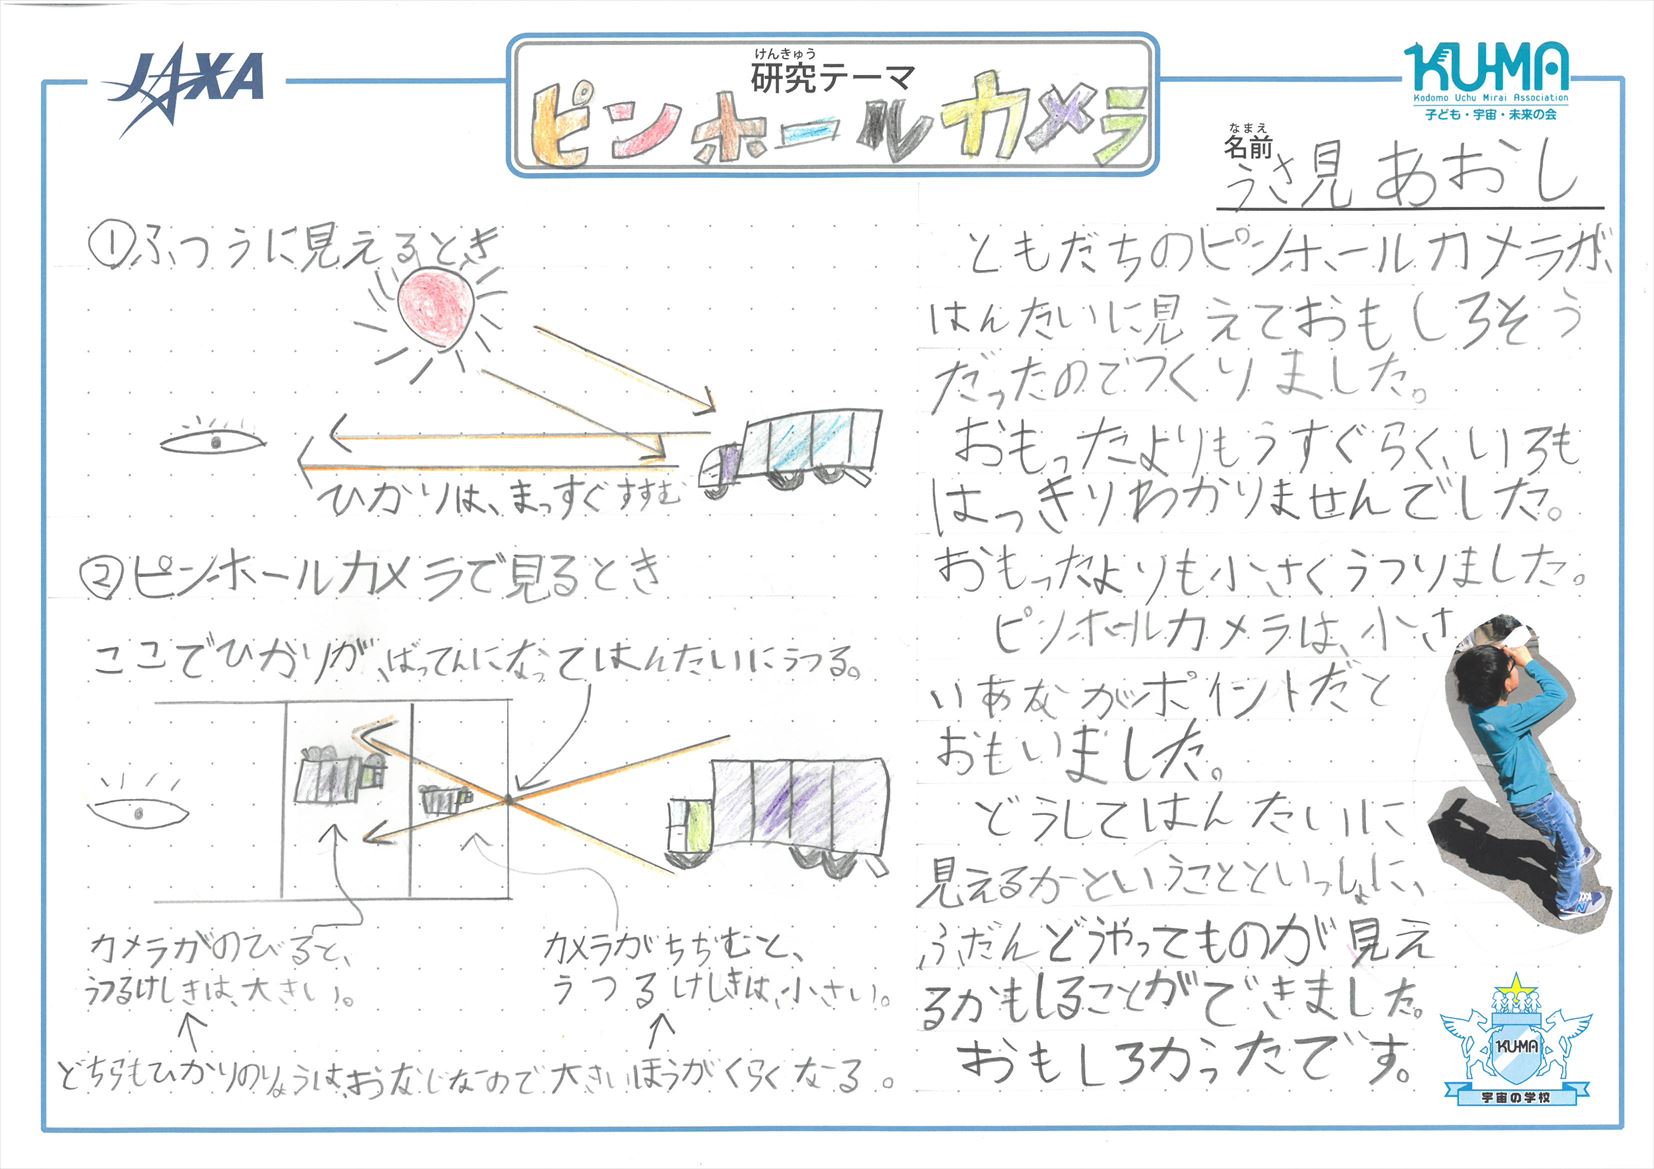 JAXA
けんきゅう
研究テーマ
ピンホールカメラ
KU-MA
Kodomo Uchu Mirai Association
子ども・宇宙・未来の会
なまえ
名前
うさ見 あおし
①ふつうに見えるとき
ひかりは、まっすぐすすむ
②ピンホールカメラで見るとき
ここでひかりが、ばってんになってはんたいにうつる。
カメラがのびると、
うつるけしきは、大きい。
カメラがちぢむと、
うつるけしきは、小さい。
どちらもひかりのりょうは、おなじなので大きいほうがくらくなる。
ともだちのピンホールカメラが、
はんたいに見えておもしろそう
だったのでつくりました。
おもったよりもうすぐらく、いろも
はっきりわかりませんでした。
おもったよりも小さくうつりました。
ピンホールカメラは、小さ
いあながポイントだと
おもいました。
どうしてはんたいに
見えるかということといっしょに、
ふだんどうやってものが見え
るかもしることができました。
おもしろかったです。
KU-MA
宇宙の学校